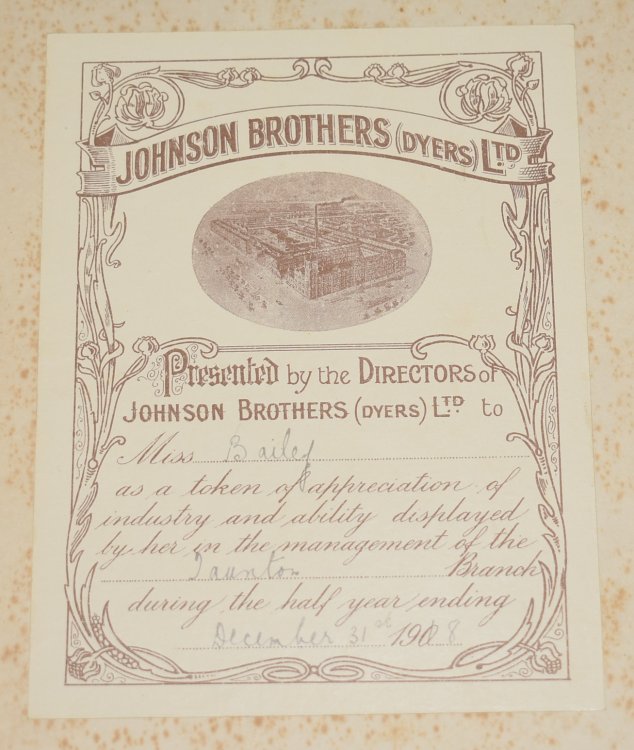 JOHNSON BROTHERS (DYERS) LTD
Presented by the DIRECTORS of
JOHNSON BROTHERS (DYERS) LTD. to
Miss Bailey
as a token of appreciation of
industry and ability displayed
by her in the management of the
Taunton Branch
during the half year ending
December 31st 1918